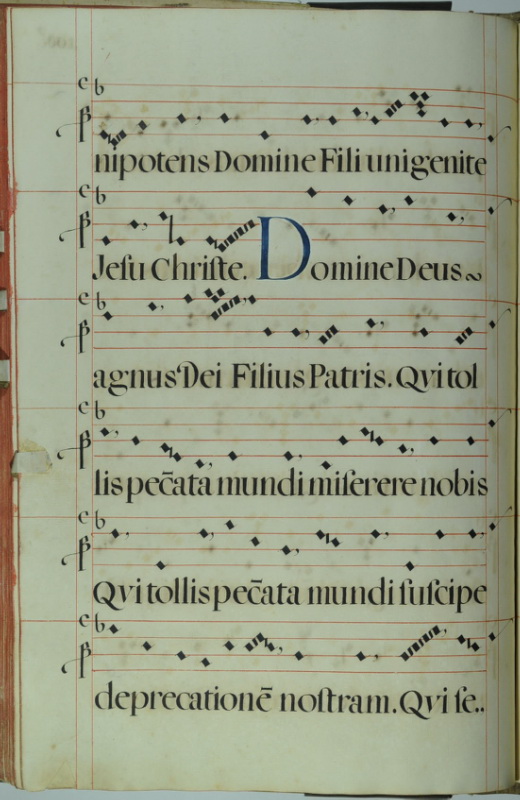 nipotens Domine Fili unigenite
Jeſu Chriſte. Domine Deus
agnus Dei Filius Patris. Qvi tol
lis pec̄ata mundi miſerere nobis
Qvi tollis pec̄ata mundi ſuſcipe
deprecationē noſtram. Qvi ſe..